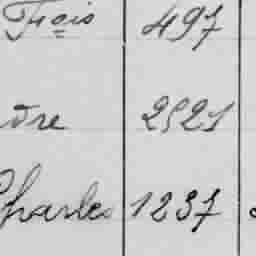 Frois 497
dre 2521
Charles 1237